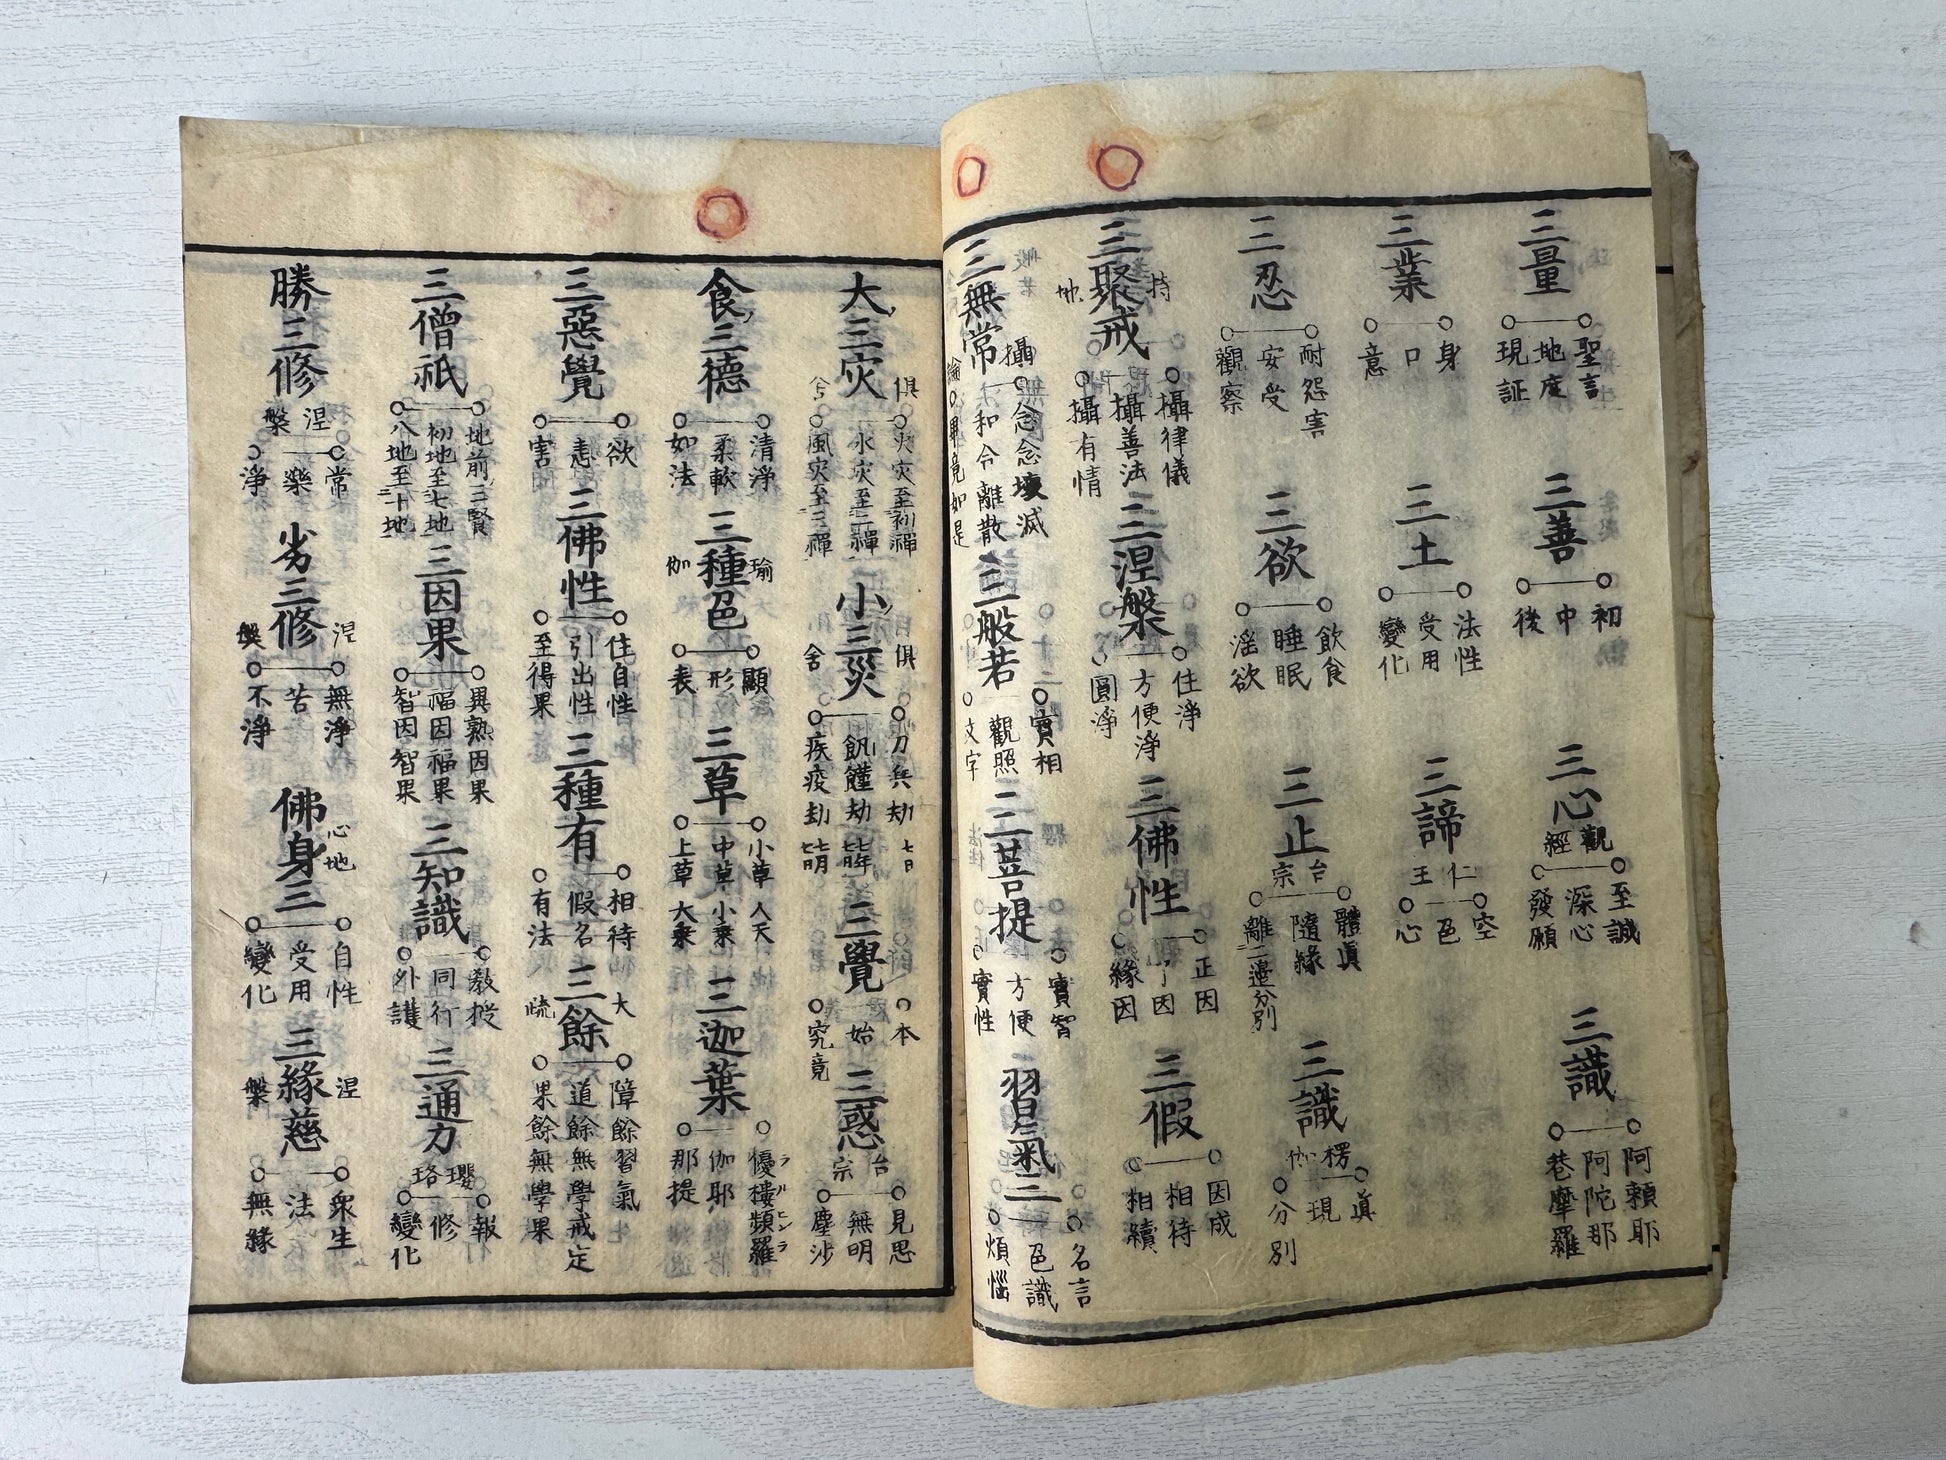 三量
聖言
地度
現証
三善
初
中
後
三心
觀經
至誠
深心
發願
三識
阿賴耶
阿陀那
菴摩羅
三業
身
口
意
三土
法性
受用
變化
三諦
仁王
空
色
心
三忍
耐怨害
安受
觀察
三欲
飲食
睡眠
淫欲
三止
台宗
體眞
隨緣
離二邊分別
三識
楞伽
眞
現
分別
三聚戒
持地
攝律儀
攝善法
攝有情
三涅槃
住淨
方便淨
圓淨
三佛性
正因
了因
緣因
三假
因成
相待
相續
三無常
攝論
念念壞滅
和合離散
畢竟如是
三般若
實相
觀照
文字
三菩提
實智
方便
實性
習氣三
名言
色識
煩惱
大三灾
俱舍
火灾至初禪
水灾至二禪
風灾至三禪
小三災
俱舍
刀兵劫七日
飢饉劫
疾疫劫
三覺
本
始
究竟
三惑
台宗
見思
無明
塵沙
食三德
清淨
柔軟
如法
三種色
瑜伽
顯
形
表
三草
小草人天
中草小乘
上草大乘
三迦葉
優樓頻羅
ラルヒンラ
伽耶
那提
三惡覺
欲
恚
害
三佛性
住自性
引出性
至得果
三種有
相待
假名
有法
三餘
大疏
障餘習氣
道餘無學戒定
果餘無學果
三僧祇
地前三賢
初地至七地
八地至十地
三因果
異熟因果
福因福果
智因智果
三知識
教授
同行
外護
三通力
瓔珞
報
修
變化
勝三修
涅槃
常
樂
淨
劣三修
涅槃
無淨
苦
不淨
佛身三
心地
自性
受用
變化
三緣慈
涅槃
衆生
法
無緣